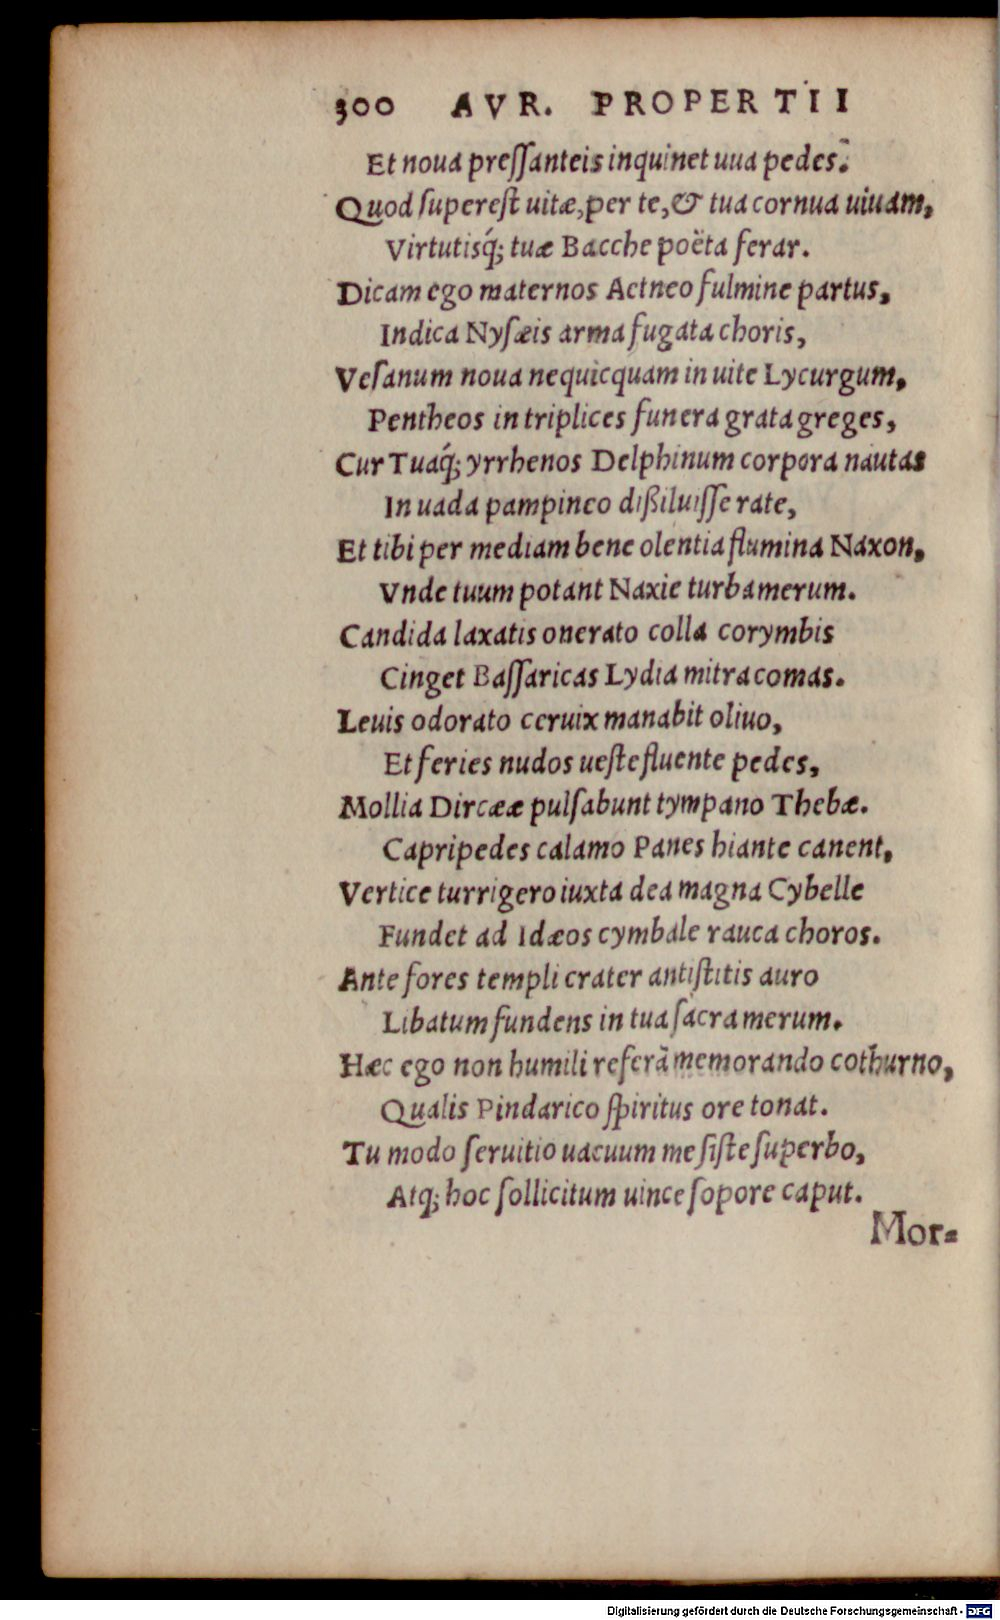 300 AVR. PROPERTII
Et noua preſſanteis inquinet uua pedes.
Quod ſupereſt uitæ, per te, & tua cornua uiuam,
Virtutisq́; tuæ Bacche poëta ferar.
Dicam ego maternos Aetneo fulmine partus,
Indica Nyſæis arma fugata choris,
Veſanum noua nequicquam in uite Lycurgum,
Pentheos in triplices funera grata greges,
Cur Tuaq́; yrrhenos Delphinum corpora nautas
In uada pampineo dißiluiſſe rate,
Et tibi per mediam bene olentia flumina Naxon,
Vnde tuum potant Naxie turba merum.
Candida laxatis onerato colla corymbis
Cinget Baſſaricas Lydia mitra comas.
Leuis odorato ceruix manabit oliuo,
Et feries nudos ueſte fluente pedes,
Mollia Dircææ pulſabunt tympano Thebæ.
Capripedes calamo Panes hiante canent,
Vertice turrigero iuxta dea magna Cybelle
Fundet ad Idæos cymbale rauca choros.
Ante fores templi crater antiſtitis auro
Libatum fundens in tua ſacra merum.
Hæc ego non humili referã memorando cothurno,
Qualis Pindarico ſpiritus ore tonat.
Tu modo ſeruitio uacuum me ſiſte ſuperbo,
Atq; hoc ſollicitum uince ſopore caput.
Mor-
Digitalisierung gefördert durch die Deutsche Forschungsgemeinschaft - DFG